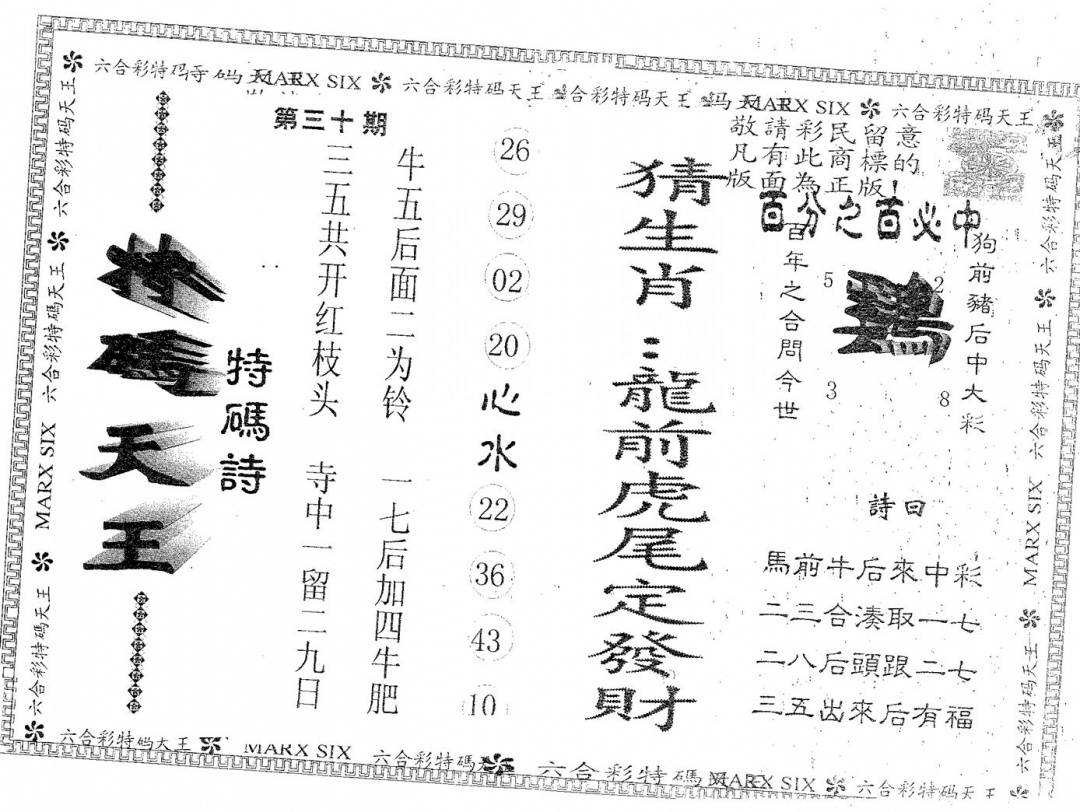 六合彩特码 MARX SIX 六合彩特码天王 合彩特码天王 MARX SIX 六合彩特码天王
第三十期
敬請彩民留意
凡有此商標的
版面為正版!
百分之百必中
狗前豬后中大彩
百年之合問今世
鷄
5
2
3
8
詩曰
馬前牛后來中彩
二三合湊取一七
二八后頭跟二七
三五出來后有福
猜生肖:龍前虎尾定發財
26
29
02
20
心水
22
36
43
10
牛五后面二为铃 一七后加四牛肥
三五共开红枝头 寺中一留二九日
特碼詩
特碼天王
六合彩特码天王 MARX SIX 六合彩特码天王 六合彩特码天王
六合彩特码天王 六合彩特码天王 MARX SIX 六合彩特码天王
六合彩特码大王 MARX SIX 六合彩特碼 六合彩特碼 MARX SIX 六合彩特码天王